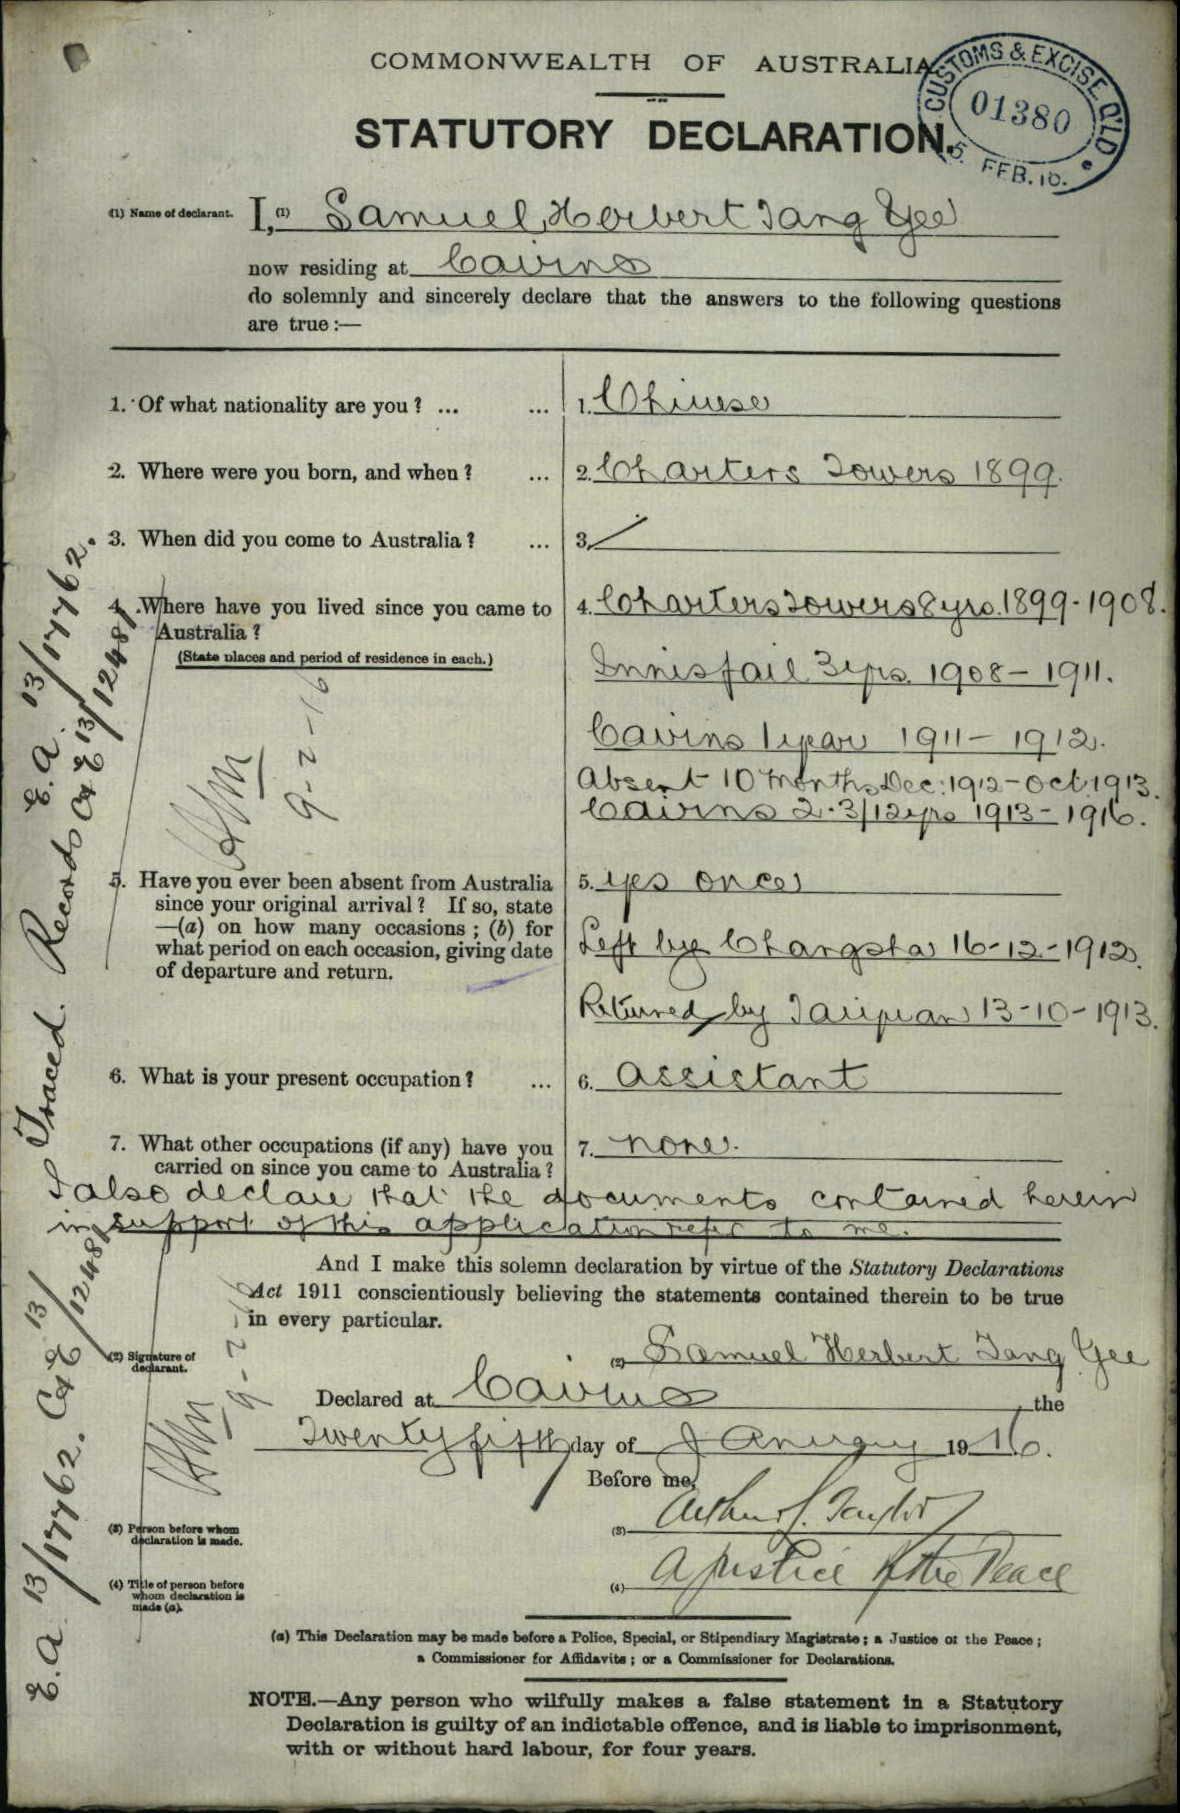 COMMONWEALTH OF AUSTRALIA.
CUSTOMS & EXCISE Q'LD
01380
5. FEB. 16.
STATUTORY DECLARATION.
(1) Name of declarant. I, (1) Samuel Herbert Tang Yee
now residing at Cairns
do solemnly and sincerely declare that the answers to the following questions
are true :—
1. Of what nationality are you? ... ... 1. Chinese
2. Where were you born, and when? ... 2. Charters Towers 1899.
3. When did you come to Australia? ... 3.
4. Where have you lived since you came to 4. Charters Towers 8 yrs. 1899-1908.
Australia?
(State places and period of residence in each.)
Innisfail 3 yrs. 1908 – 1911.
Cairns 1 year 1911 – 1912.
Absent 10 months Dec: 1912 - Oct. 1913.
Cairns 2-3/12 yrs 1913 – 1916.
9-2-16
5. Have you ever been absent from Australia 5. yes once
since your original arrival? If so, state
—(a) on how many occasions; (b) for
what period on each occasion, giving date Left by Changsha 16-12-1912.
of departure and return.
Returned by Taiyuan 13-10-1913.
6. What is your present occupation? ... 6. Assistant
7. What other occupations (if any) have you 7. none.
carried on since you came to Australia?
I also declare that the documents contained herein
in support of this application refer to me.
And I make this solemn declaration by virtue of the Statutory Declarations
Act 1911 conscientiously believing the statements contained therein to be true
in every particular.
(2) Signature of
declarant.
(2) Samuel Herbert Tang Yee
Declared at Cairns the
Twenty fifth day of January 1916.
Before me,
9-2-16
(3) Person before whom
declaration is made.
(3) Arthur J. Taylor
(4) Title of person before
whom declaration is
made (a).
(4) A Justice of the Peace
(a) This Declaration may be made before a Police, Special, or Stipendiary Magistrate; a Justice of the Peace;
a Commissioner for Affidavits; or a Commissioner for Declarations.
NOTE.—Any person who wilfully makes a false statement in a Statutory
Declaration is guilty of an indictable offence, and is liable to imprisonment,
with or without hard labour, for four years.
E.A. 13/17762. C&E 13/12481 Traced. Records C&E 13/12481.
E.A. 13/17762.